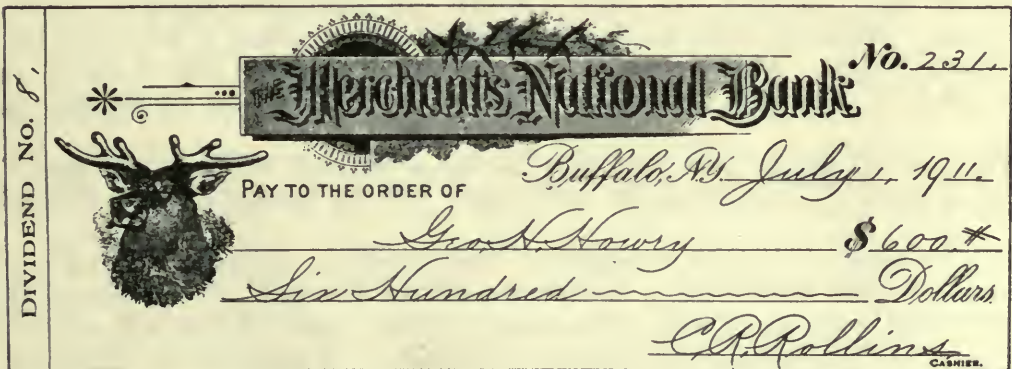 DIVIDEND No. 8,
No. 231.
THE Merchants National Bank
Buffalo, N.Y. July 1, 1911.
PAY TO THE ORDER OF
Geo. H. Howry $600.#
Six Hundred Dollars
C. R. Rollins
CASHIER.